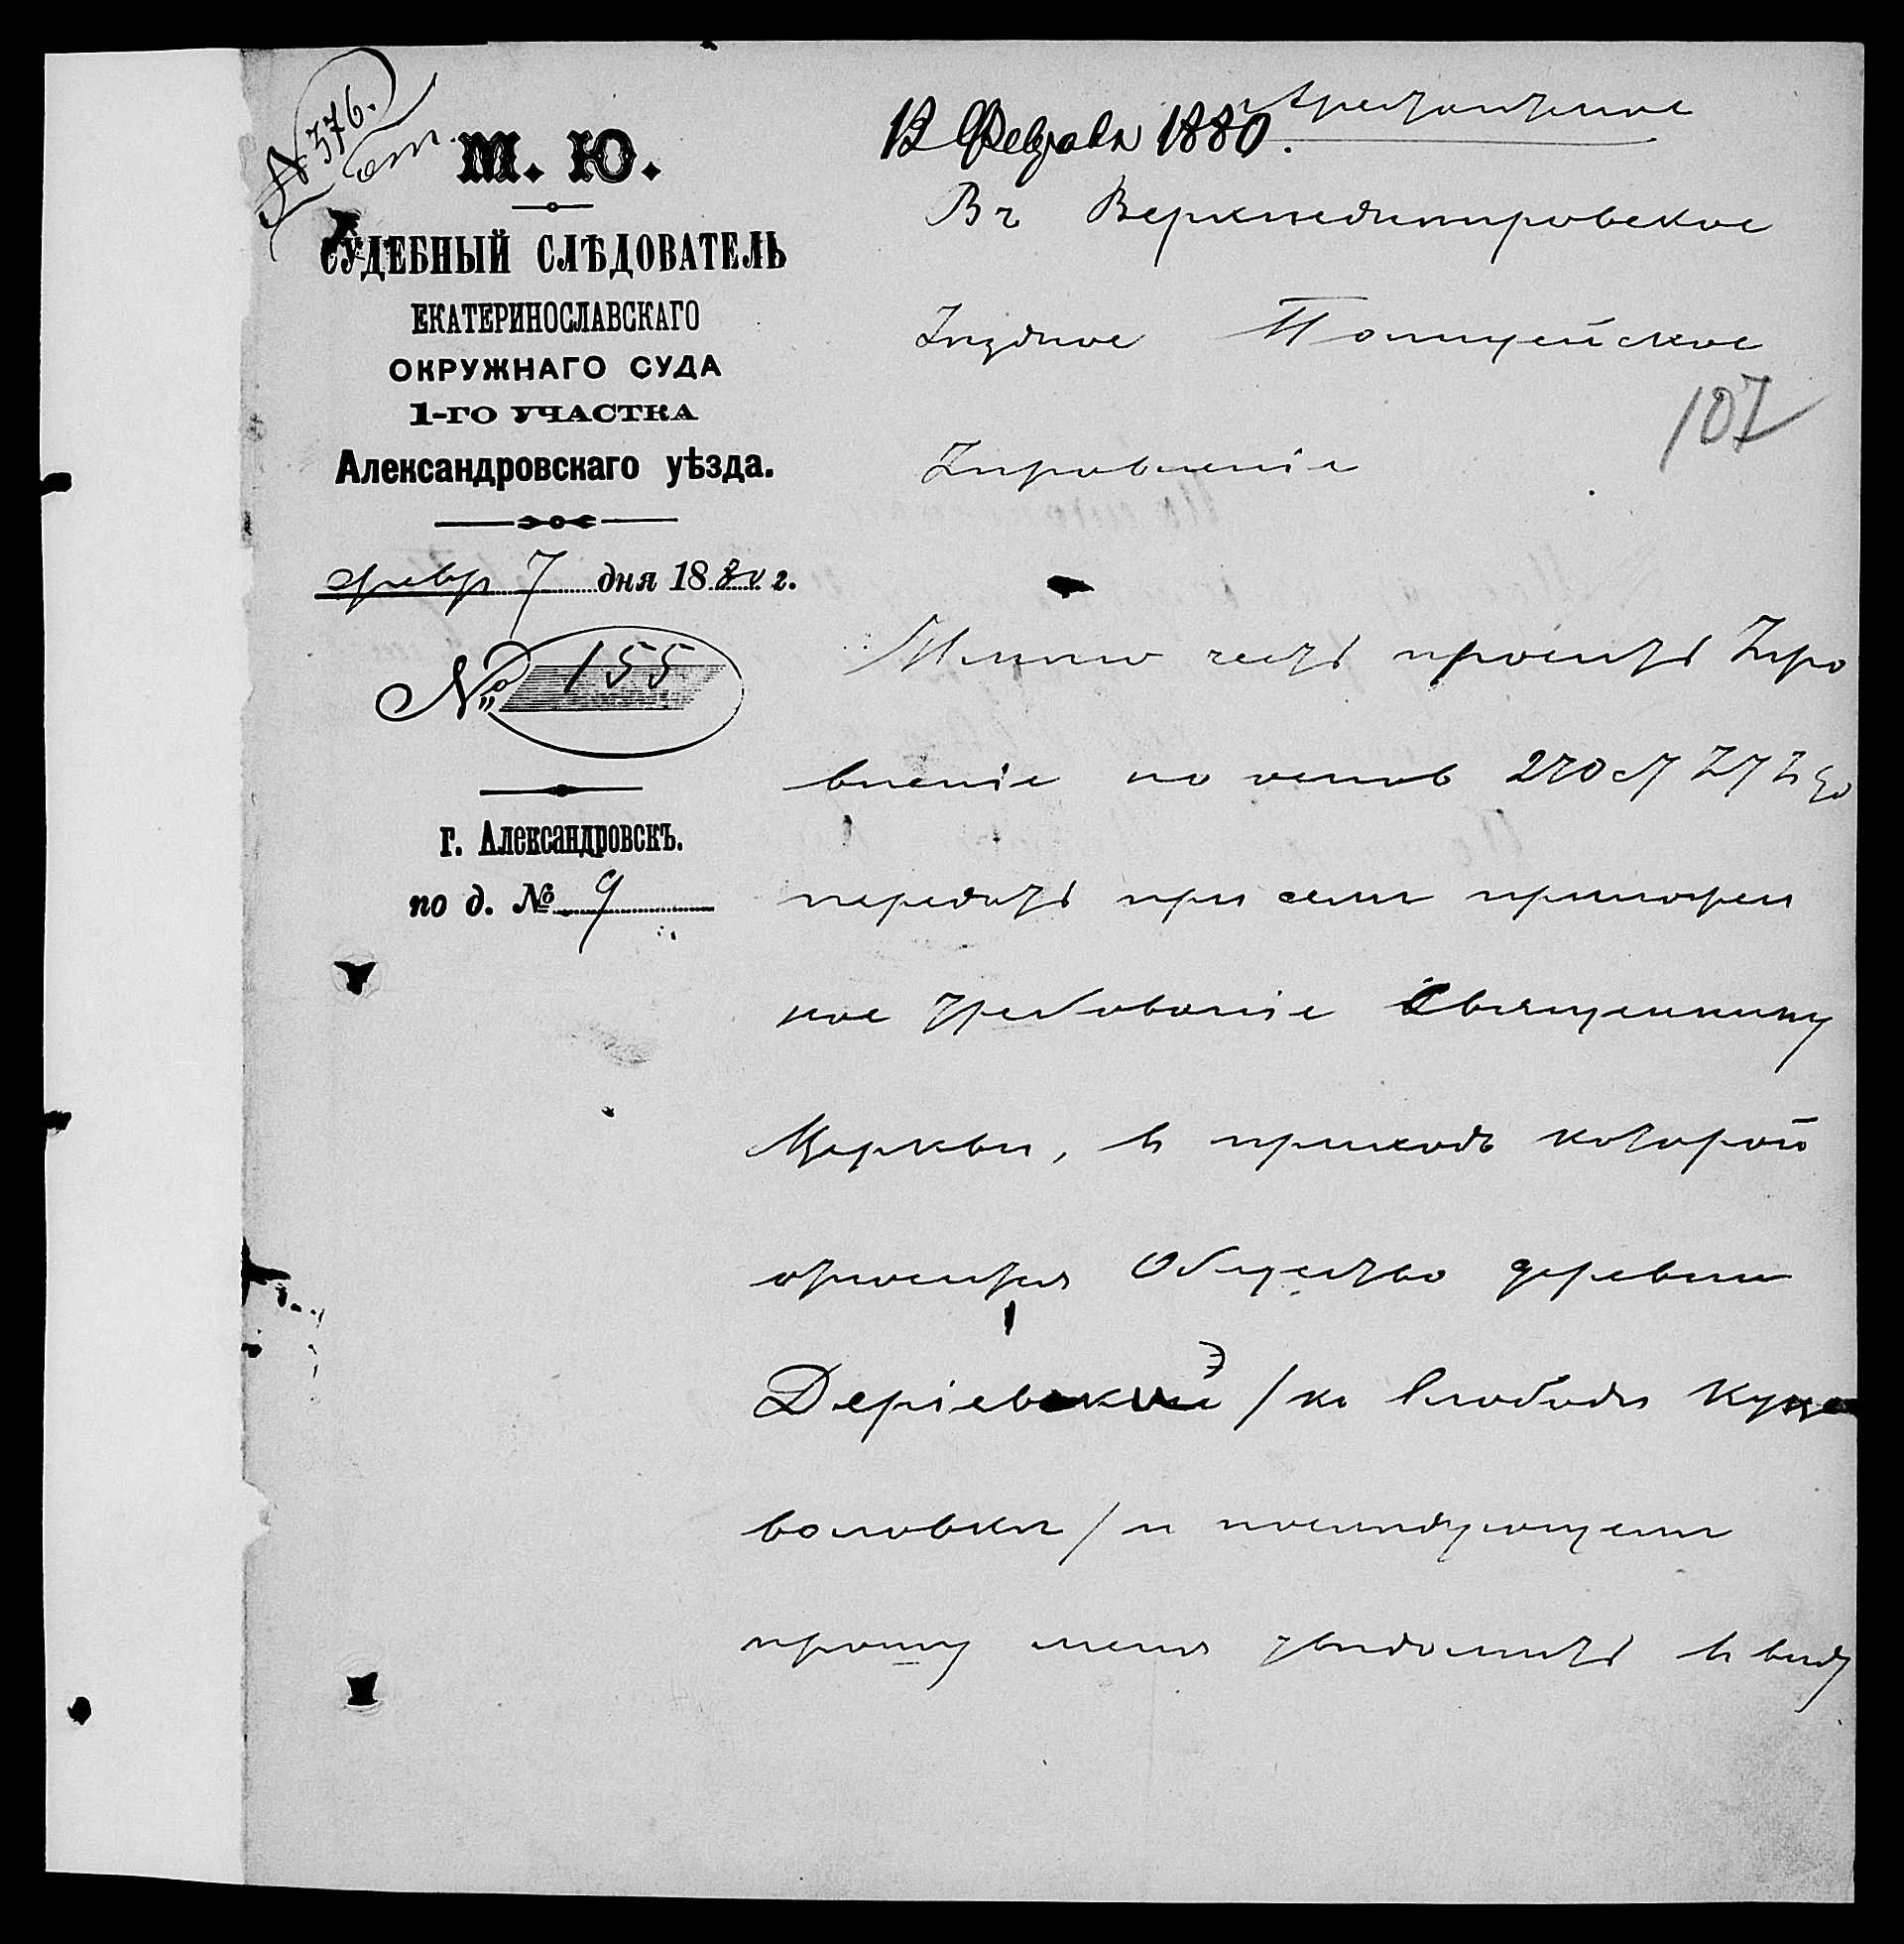 № 376.
М. Ю.
СУДЕБНЫЙ СЛѢДОВАТЕЛЬ
ЕКАТЕРИНОСЛАВСКАГО
ОКРУЖНАГО СУДА
1-ГО УЧАСТКА
Александровскаго уѣзда.
февр 7 дня 1880 г.
№ 155
г. Александровскъ.
по д. № 9
Арестантское
12 Февраля 1880.
Въ Верхнеднѣпровское
Уѣздное Полицейское
107
Управленіе
Имѣю честь просить Упра
вленіе на основ 270 ст У У С
передать при семъ приложен
ное требованіе Священнику
Церкви, въ приходѣ которой
относится Общество деревни
Деріевской / ко Слободѣ Куце
воловкѣ / и послѣдующемъ
прошу меня увѣдомить въ виду